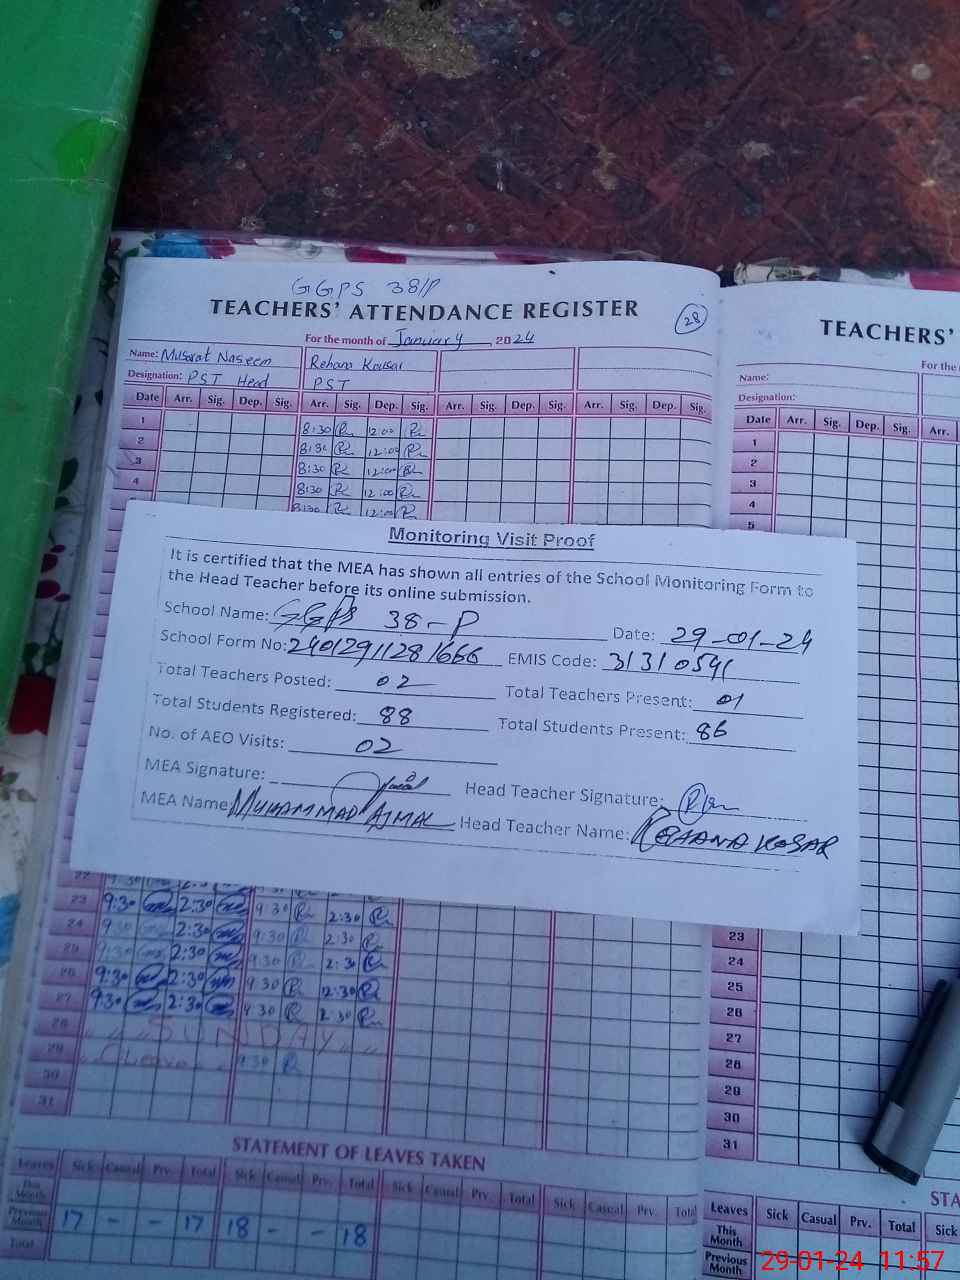 GGPS 38/P
TEACHERS' ATTENDANCE REGISTER
28
For the month of January, 2024
Name: Musarat Naseem Rehana Kousar
Designation: PST Head PST
Date Arr. Sig. Dep. Sig. Arr. Sig. Dep. Sig. Arr. Sig. Dep. Sig. Arr. Sig. Dep. Sig.
1 8:30 12:00
2 8:30 12:00
3 8:30 12:00
4 8:30 12:00
8:30 12:00
Monitoring Visit Proof
It is certified that the MEA has shown all entries of the School Monitoring Form to
the Head Teacher before its online submission.
School Name: GGPS 38-P Date: 29-01-24
School Form No: 24012911281666 EMIS Code: 31310541
Total Teachers Posted: 02 Total Teachers Present: 01
Total Students Registered: 88 Total Students Present: 86
No. of AEO Visits: 02
MEA Signature: Head Teacher Signature:
MEA Name: MUHAMMAD AJMAL Head Teacher Name: REHANA KOSAR
22 9:30
23 9:30 2:30 9:30 2:30
24 9:30 2:30 9:30 2:30
25 9:30 2:30 9:30 2:30
26 9:30 2:30 9:30 12:30
27 9:30 2:30 9:30 2:30
28 SUNDAY
29 Leave 9:30
30
31
STATEMENT OF LEAVES TAKEN
Leaves Sick Casual Prv. Total Sick Casual Prv. Total Sick Casual Prv. Total Sick Casual Prv. Total
This Month
Previous Month 17 - - 17 18 - - 18
Total
TEACHERS'
For the
Name:
Designation:
Date Arr. Sig. Dep. Sig. Arr.
1
2
3
4
5
23
24
25
26
27
28
29
30
31
STA
Leaves Sick Casual Prv. Total Sick
This Month
Previous Month
29-01-24 11:57